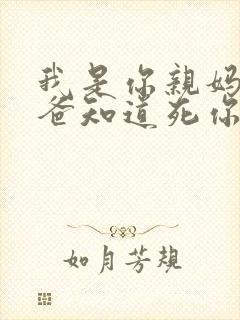 我是你親妈
爸知道死你
如月芳規